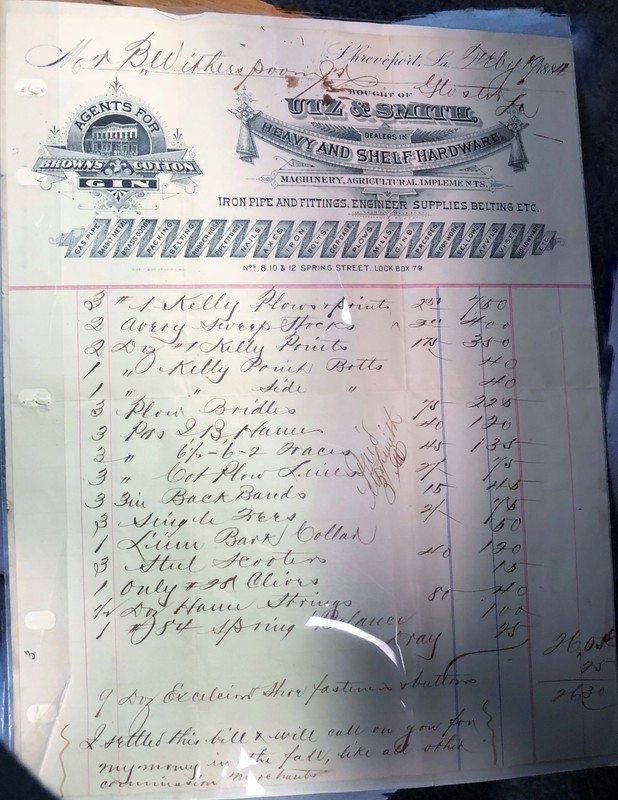 Mr B. Witherspoon Jr
Shreveport, La. Feby 19 1884
BOUGHT OF Gloster La
UTZ & SMITH,
DEALERS IN
HEAVY AND SHELF HARDWARE,
MACHINERY, AGRICULTURAL IMPLEMENTS,
IRON PIPE AND FITTINGS, ENGINEER SUPPLIES, BELTING ETC.
AGENTS FOR
BROWNS COTTON
GIN
GAS PIPE. BABBIT METAL. BRASS GOODS. PACKING. BELTING. RUBBER HOSE. PIPE FITTINGS. NAILS. AXES. IRON. BOLTS. CORDAGE. PLOWS. MILLS. GINS. PRESSES. WOOD WORK. BELLOWS. ANVILS. VISES.
Nos. 8, 10 & 12 SPRING STREET. LOCK BOX 79
3 #1 Kelly Plows & points 2 50 7 50
2 Avery Sweep Stocks " 2 00 4 00
2 Doz #1 Kelly Points 1 75 3 50
1 " Kelly Point Bolts 40
1 " " Side " 40
3 Plow Bridles 75 2 25
3 Prs 2 B Hames 40 1 20
3 " 6½-6-2 Traces 45 1 35
3 " Cot Plow Lines 25 75
3 3in Back Bands 15 45
3 Single Trees 25 75
1 Linen Bark Collar 50
3 Steel Scooters 40 1 20
1 only #28 Clives 15
½ Doz Hame Strings 80 40
1 #84 Spring Balance 1 00
Dray 25
26.05
9 Doz Excelcior Shoe fasteners & buttons 25
26 30
I settled this bill & will call on you for
my money in the fall, like all other
commission merchants
3